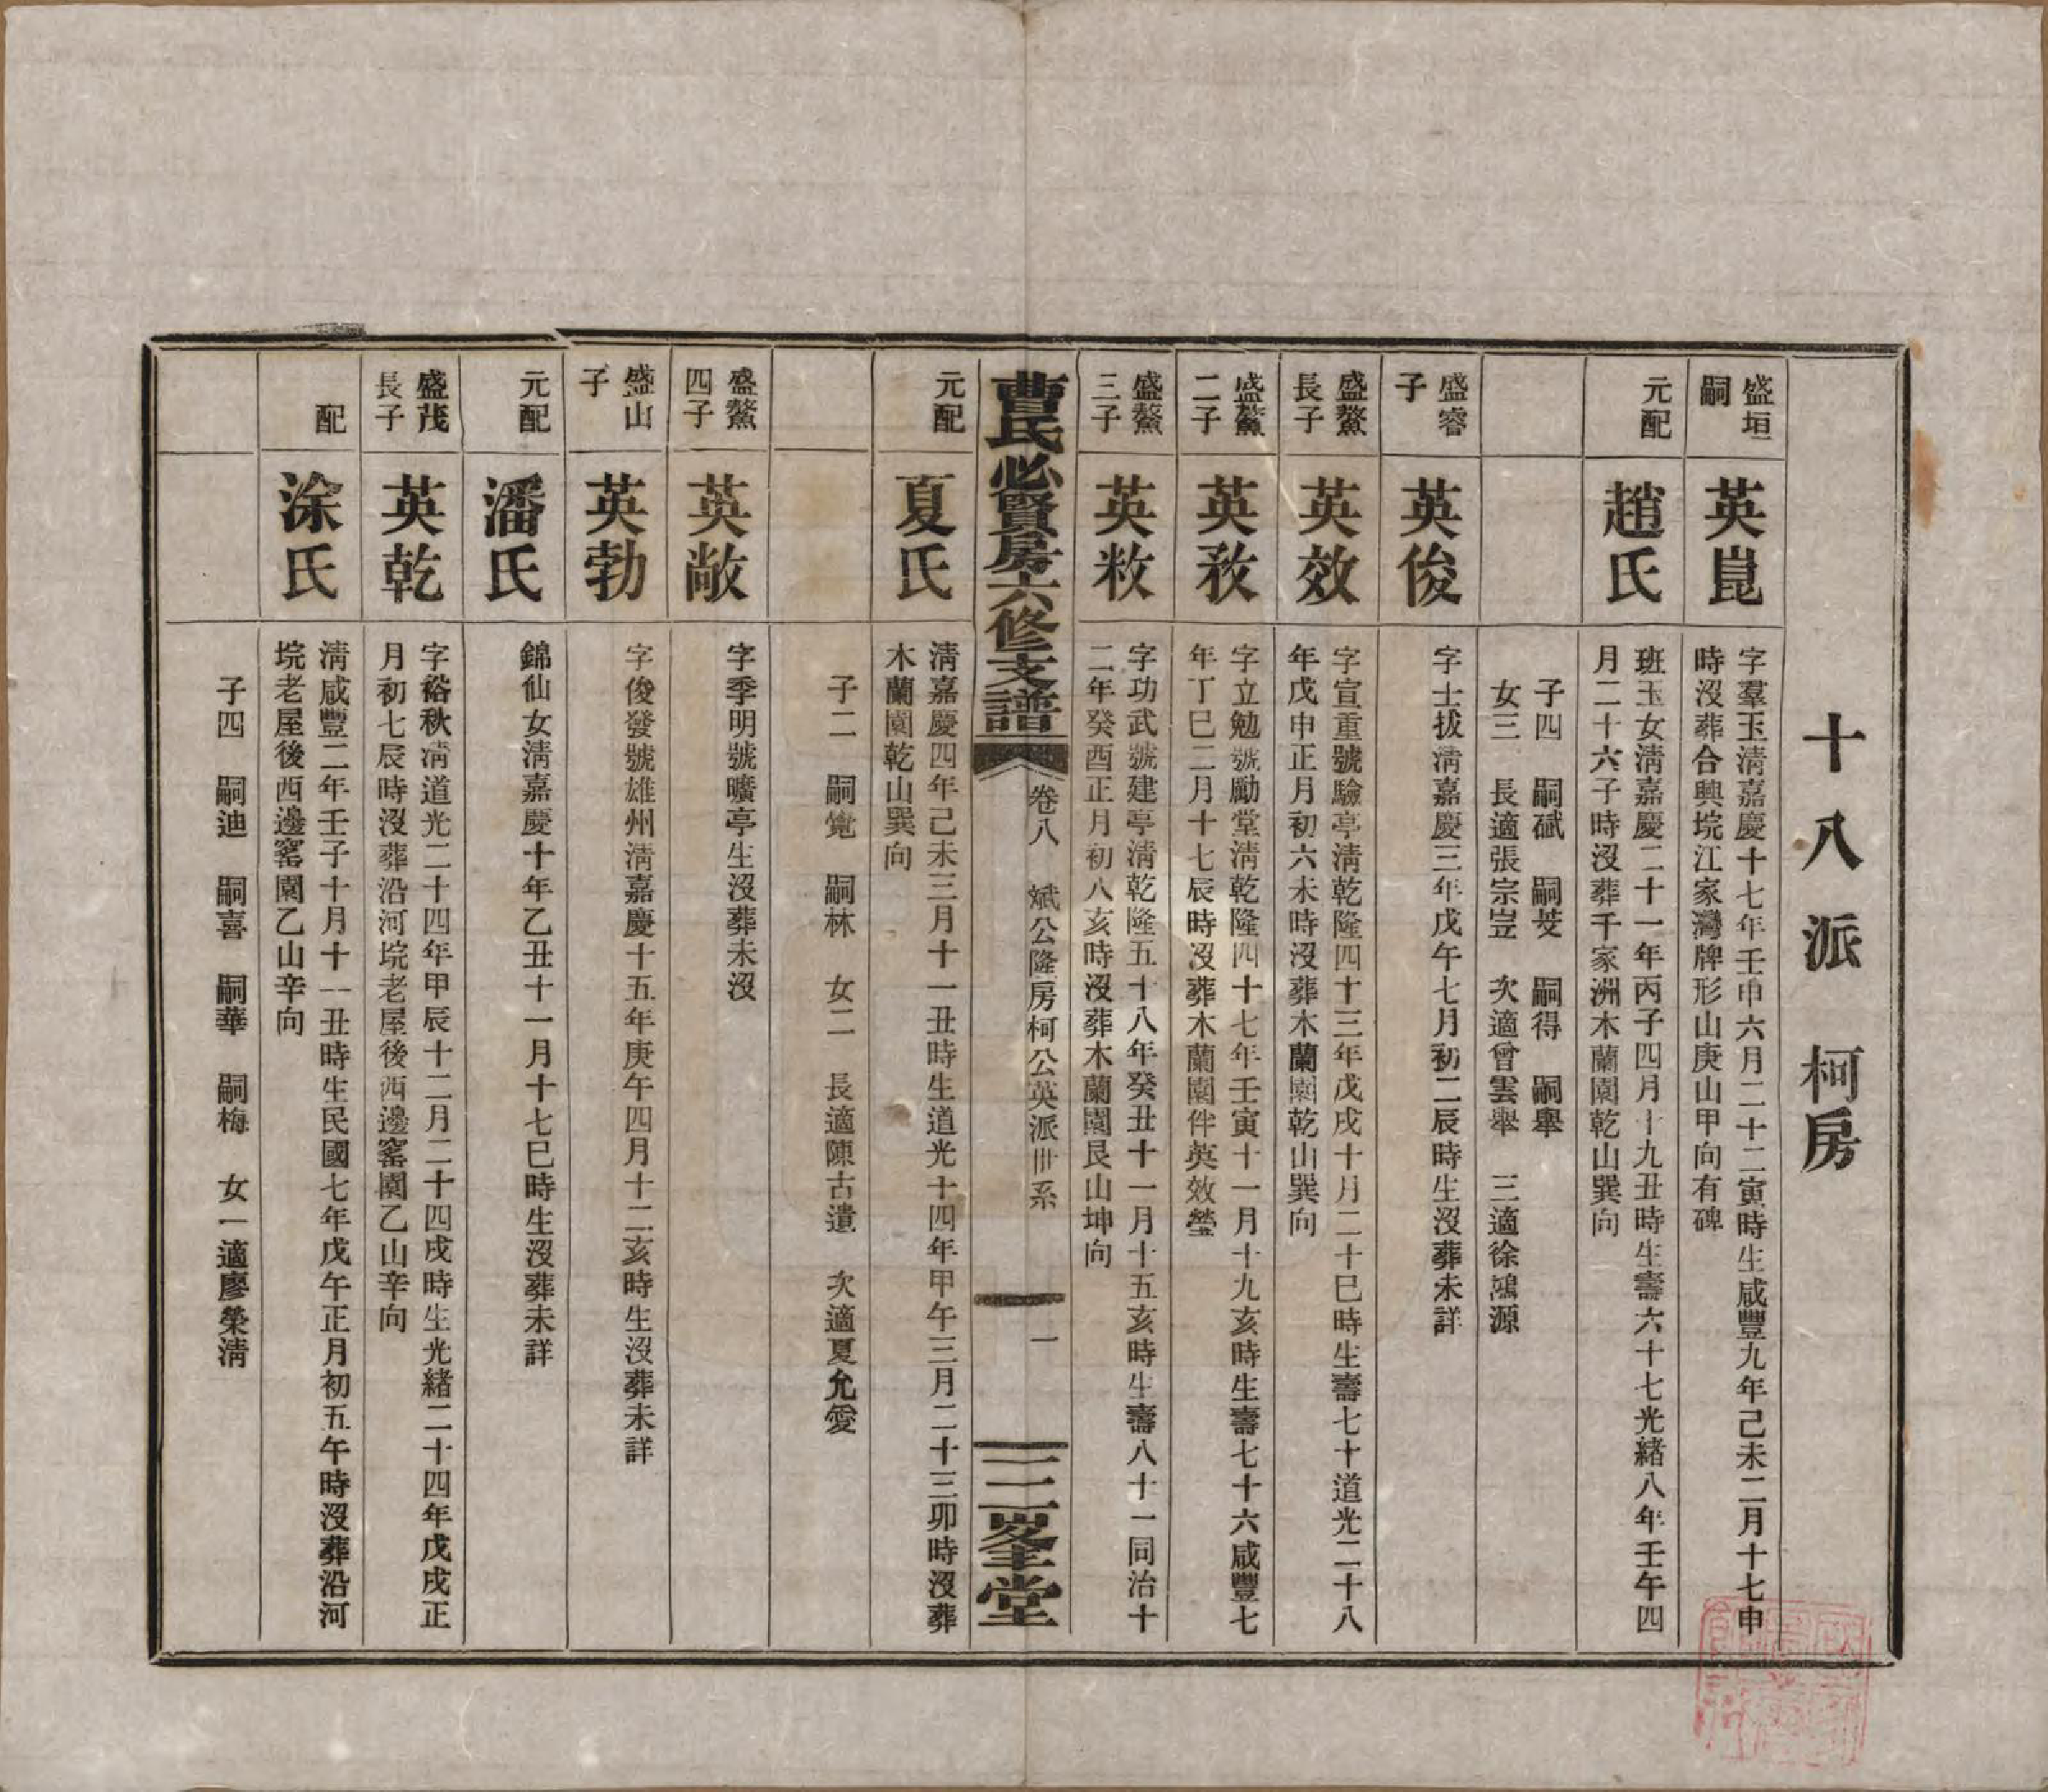 十八派 柯房
盛垣嗣
英崑
字羣玉淸嘉慶十七年壬申六月二十二寅時生咸豐九年己未二月十七申
時沒葬合興垸江家灣牌形山庚山甲向有碑
元配
趙氏
班玉女淸嘉慶二十一年丙子四月十九丑時生壽六十七光緒八年壬午四
月二十六子時沒葬千家洲木蘭園乾山巽向
子四 嗣斌 嗣芰 嗣得 嗣舉
女三 長適張宗豈 次適曾雲舉 三適徐鴻源
盛睿子
英俊
字士拔淸嘉慶三年戊午七月初二辰時生沒葬未詳
盛鰲長子
英效
字宣重號驗亭淸乾隆四十三年戊戌十月二十巳時生壽七十道光二十八
年戊申正月初六未時沒葬木蘭園乾山巽向
盛鰲二子
英敄
字立勉號勵堂淸乾隆四十七年壬寅十一月十九亥時生壽七十六咸豐七
年丁巳二月十七辰時沒葬木蘭園伴英效瑩
盛鰲三子
英敉
字功武號建亭淸乾隆五十八年癸丑十一月十五亥時生壽八十一同治十
二年癸酉正月初八亥時沒葬木蘭園艮山坤向
曹氏必賢房六修支譜
卷八 斌公隆房柯公英派世系
一
三夔堂
元配
夏氏
淸嘉慶四年己未三月十一丑時生道光十四年甲午三月二十三卯時沒葬
木蘭園乾山巽向
子二 嗣寬 嗣林 女二 長適陳古遺 次適夏允愛
盛鰲四子
英敞
字季明號曠亭生沒葬未沒
盛山子
英勃
字俊發號雄州淸嘉慶十五年庚午四月十二亥時生沒葬未詳
元配
潘氏
錦仙女淸嘉慶十年乙丑十一月十七巳時生沒葬未詳
盛茂長子
英乾
字裕秋淸道光二十四年甲辰十二月二十四戌時生光緒二十四年戊戌正
月初七辰時沒葬沿河垸老屋後西邊窰園乙山辛向
配
涂氏
淸咸豐二年壬子十月十一丑時生民國七年戊午正月初五午時沒葬沿河
垸老屋後西邊窰園乙山辛向
子四 嗣迪 嗣喜 嗣華 嗣梅 女一適廖榮淸